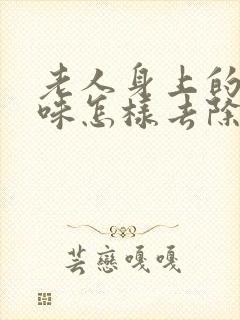 老人身上的
味怎样去除
芸戀嘎嘎